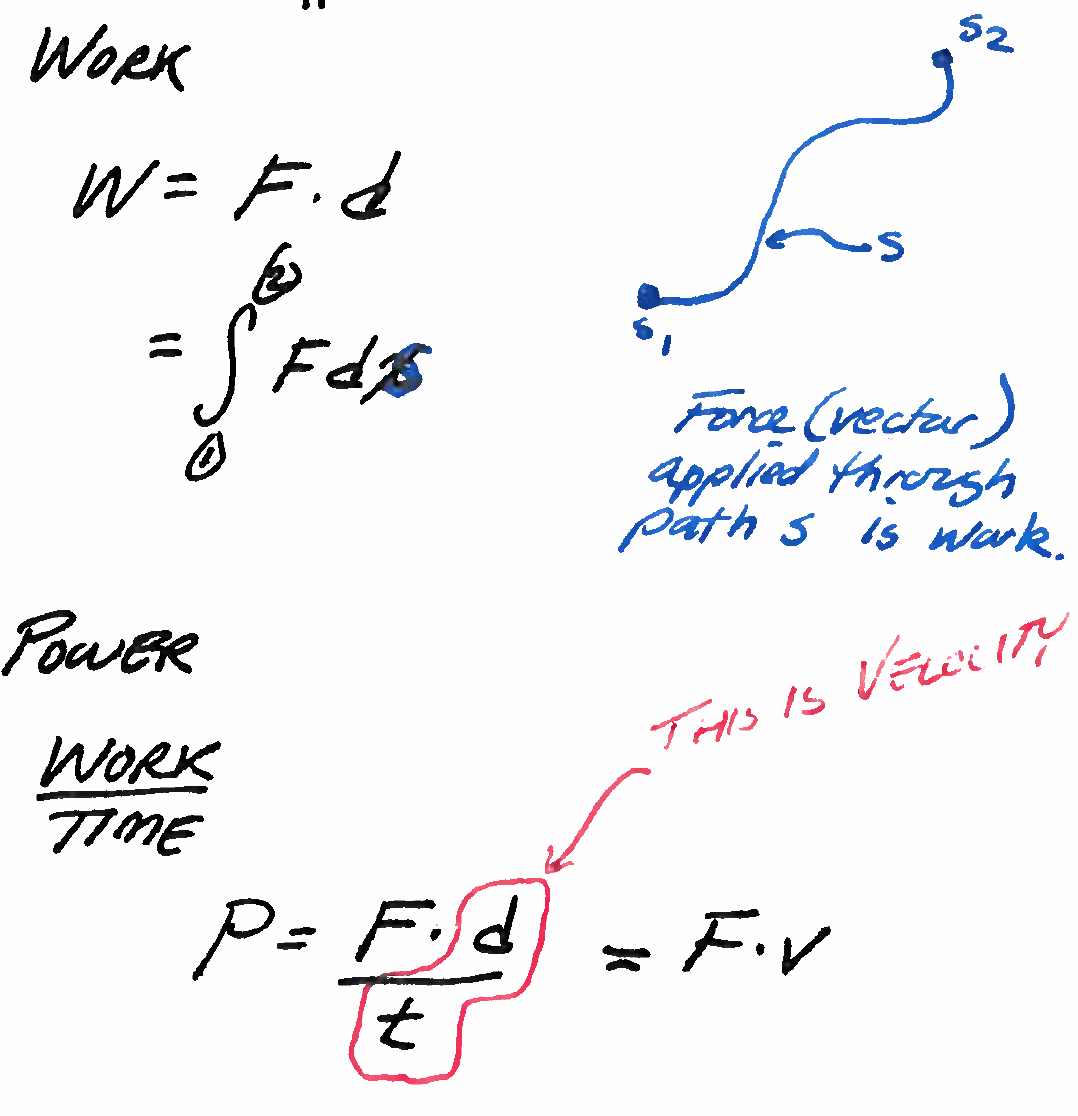 WORK
W = F · d
= ∫ F ds
②
①
s2
s
s1
Force (vector)
applied through
path s is work.
POWER
WORK
TIME
THIS IS VELOCITY
P = F · d / t = F · v